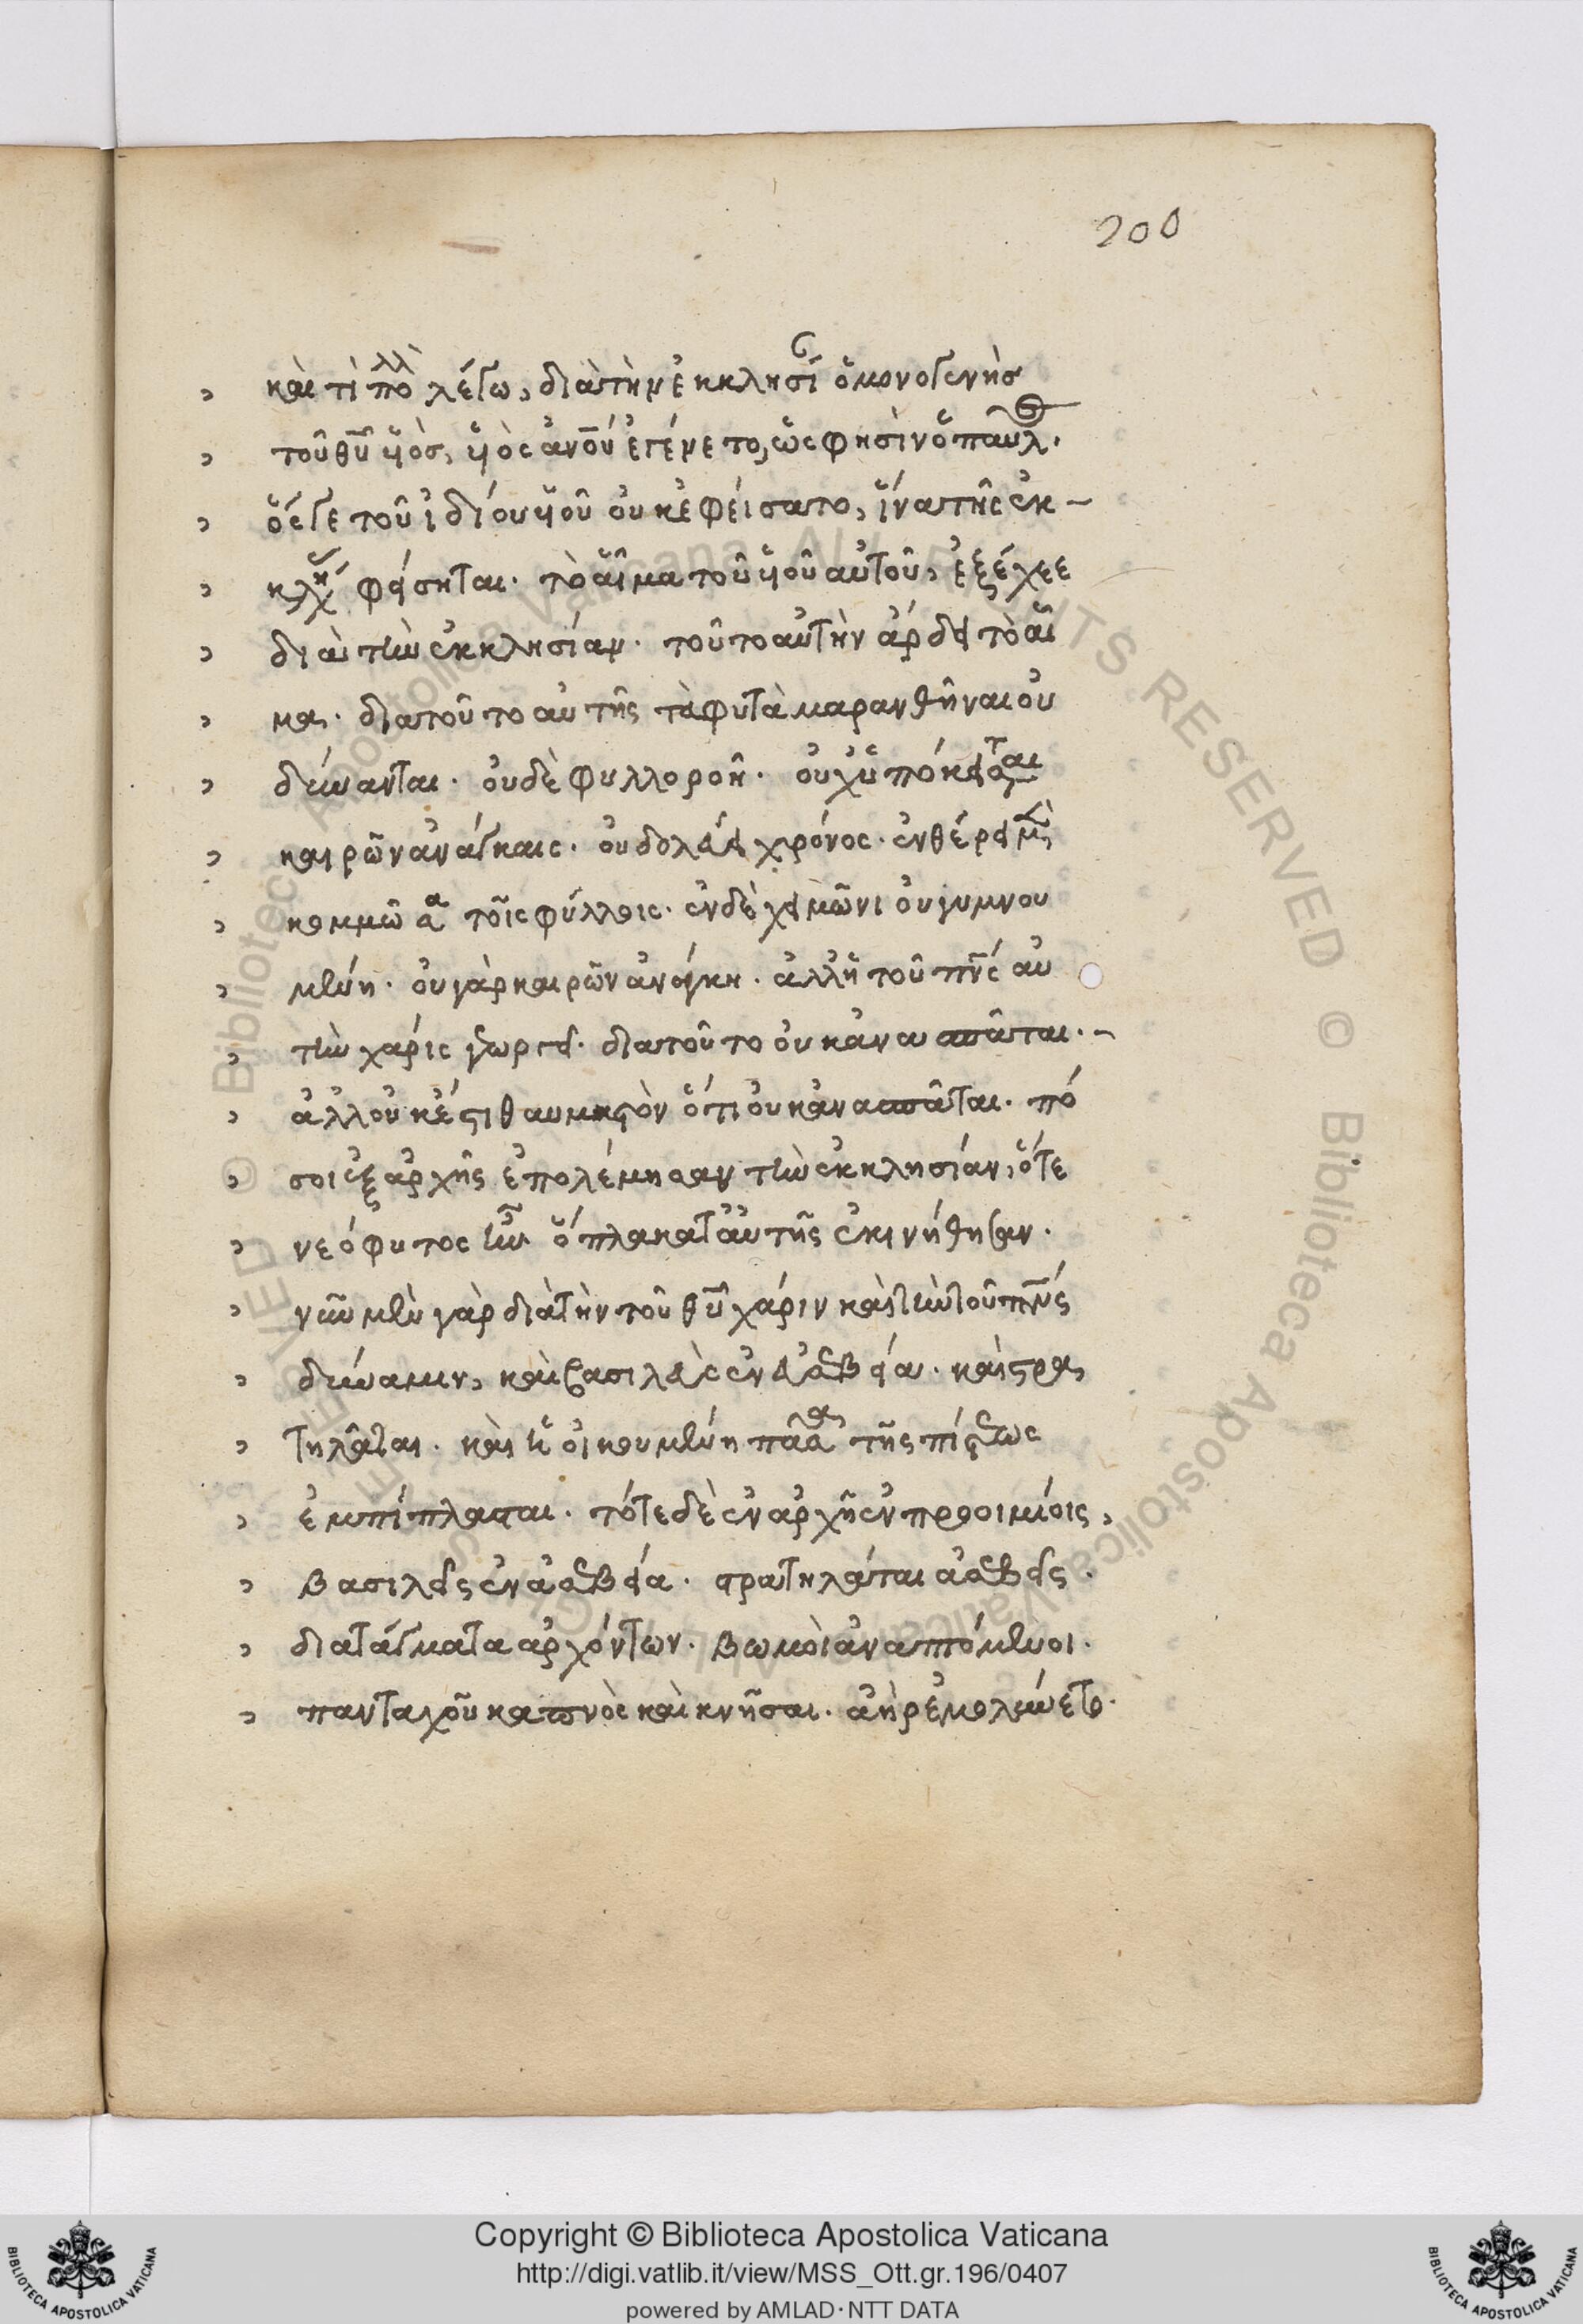 200
καὶ τί πολλὰ λέγω, διὰ τὴν ἐκκλησίαν ὁ μονογενὴς
τοῦ θυ υἱὸς, υἱὸς ἀνου ἐγένετο, ὥς φησὶν ὁ παυλος.
ὅς γε τοῦ ἰδίου υἱοῦ οὐκ ἐφείσατο, ἵνα τῆς ἐκ-
κλησίας φείσηται. τὸ αἷμα τοῦ υἱοῦ αὐτοῦ, ἐξέχεε
διὰ τὴν ἐκκλησίαν. τοῦτο αὐτὴν ἄρδει τὸ αἷ
μα. διατοῦτο αὐτῆς τὰ φυτὰ μαρανθῆναι οὐ
δύνανται. οὐδὲ φυλλοροῆ. οὐχ ὑπόκειται
καιρῶν ἀνάγκαις. οὐ δουλεύει χρόνος. ἐν θέρει μὲν
κομμῶσα τοῖς φύλλοις. ἐν δὲ χειμῶνι οὐ γυμνου
μένη. οὐ γὰρ καιρῶν ἀνάγκη. ἀλλ' ἡ τοῦ πνς αὐ
τὴν χάρις γεωργεῖ. διατοῦτο οὐκ ἀναπαῦται.
ἀλλ' οὐκ ἔστι θαυμαστὸν ὅτι οὐκ ἀναπαῦται. πό
σοι ἐξ ἀρχῆς ἐπολέμησαν τὴν ἐκκλησίαν, ὅτε
νεόφυτος ἦν. ὅπλα κατ' αὐτῆς ἐκινήθησαν.
νῦν μὲν γὰρ διὰ τὴν τοῦ θυ χάριν καὶ τὴν τοῦ πνς
δύναμιν, καὶ βασιλεῖς ἐν εὐσεβεία. καὶ στρα
τηλάται. καὶ ἡ οἰκουμένη πᾶσα τῆς πίστεως
ἐμπίπλαται. τότε δὲ ἐν ἀρχῆ ἐν προοιμίοις,
βασιλεῖς ἐν ἀσεβεία. στρατηλάται ἀσεβεῖς.
διατάγματα ἀρχόντων. βωμοὶ ἀναπτόμενοι.
πανταχοῦ καπνὸς καὶ κνῆσαι. ἀὴρ ἐμολύνετο.
Copyright © Biblioteca Apostolica Vaticana
http://digi.vatlib.it/view/MSS_Ott.gr.196/0407
powered by AMLAD · NTT DATA
BIBLIOTECA APOSTOLICA VATICANA
BIBLIOTECA APOSTOLICA VATICANA